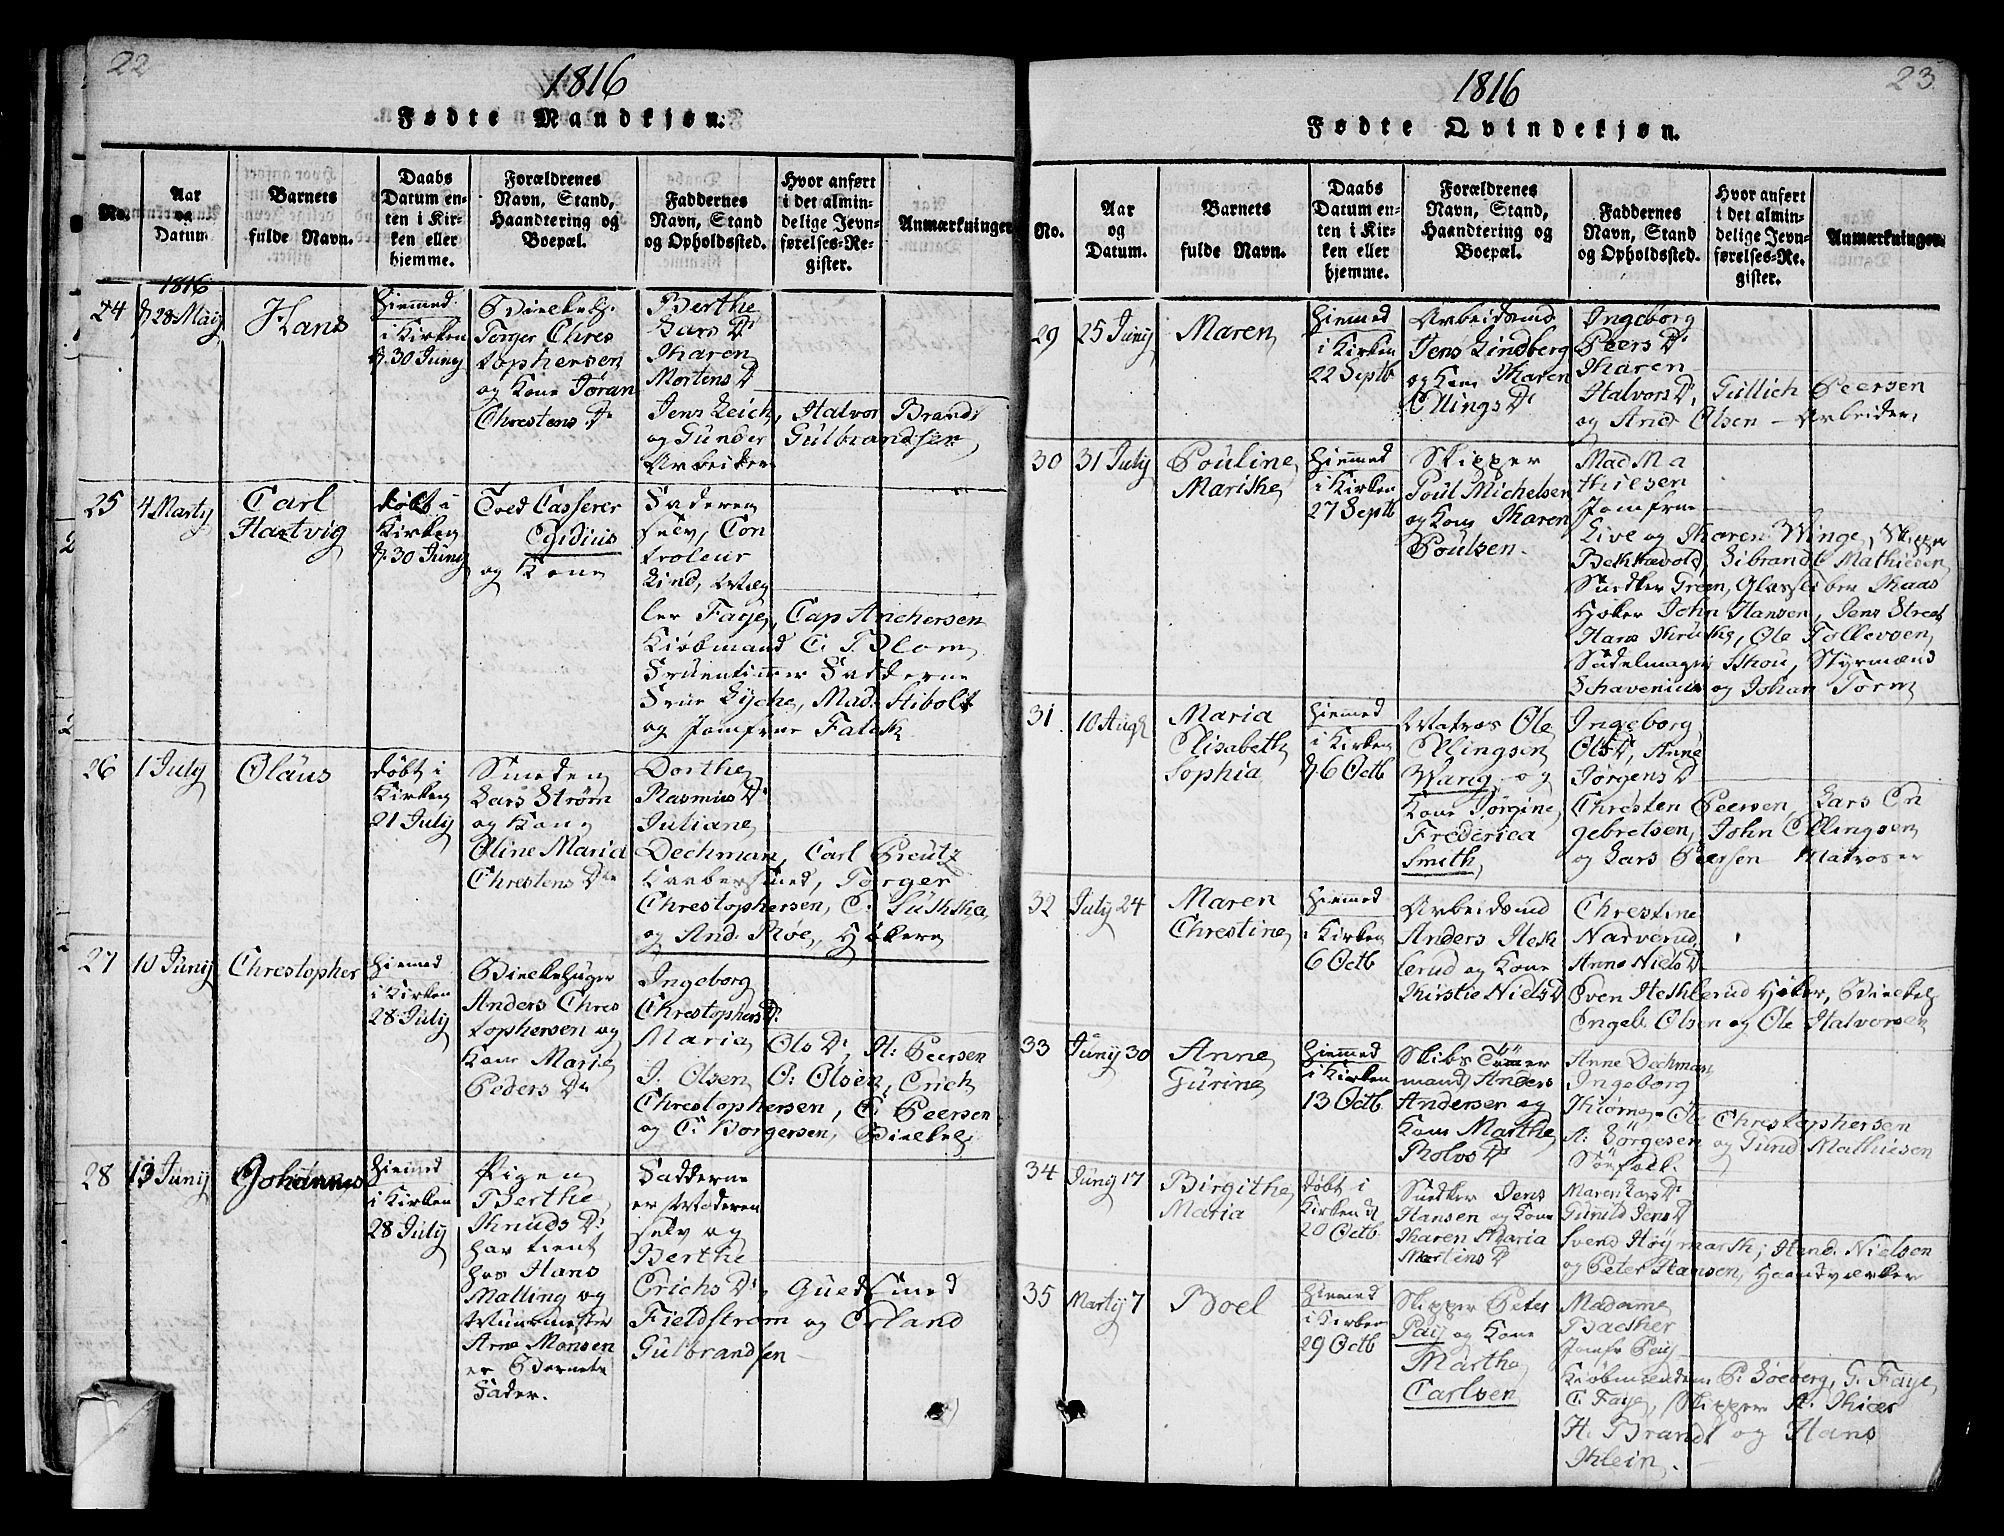 22
1816
Fødte Mandkjøn.
No.
Aar
og
Datum.
Barnets
fulde Navn.
Daabs
Datum en-
ten i Kir-
ken eller
hjemme.
Forældrenes
Navn, Stand,
Haandtering og
Boepæl.
Faddernes
Navn, Stand
og Opholdssted.
Hvor anført
i det almin-
delige Jevn-
førelses-Re-
gister.
Anmærkninger.
1816
24
28 Maij
Hans
Hiemmed
i Kirken
d. 30 Junij
Torger Chres
tophersen
og Kone Jøran
Chrestens Dr
Berthe
Lars Dr
Karen
Mortens Dr
Jens Leich, Halvor Brandt
og Gunder Gulbrandsen
Arbeider
25
4 Martij
Carl
Hartvig
døbt i
Kirken
d. 30 Junij
Toed Casserer
Egidius
og Kone
Faderen
selv, Con
troleur
Lind, Mæg
ler Faye, Cap Anchersen
Kiøbmand C. T. Blom
Fruentimmer Fadderne
Frue Lyche, Mad. Stibolt
og Jomfrue Falck
26
1 July
Olaus
døbt i
Kirken
21 July
Smeden
Lars Strøm
og Kone
Oline Maria
Chrestens Dr
Dorthe
Rasmus Dr
Juliane
Dechman, Carl Preutz
Kaabersmed, Torger
Chrestophersen, C. Lükke
og And. Moe, Høkere
27
10 Junij
Chrestopher
Hiemmed
i Kirken
28 July
Anders Chres
tophersen og
Kone Marie
Peders Dr
Ingeborg
Chrestophers Dr
Maria Ols Dr, A. Peersen
J. Olsen O. Olsen, Erich
Chrestophersen, C. Peersen
og C. Borgersen,
28
13 Junij
Johannes
Hiemmed
i Kirken
28 July
Pigen
Berthe
Knuds Dr
har tient
hos Hans
Malling og
Muurmester
Arne Monsen
er Barnets
Fader.
Fadderne
er Moderen
selv og
Berthe
Erichs Dr, Guldsmed
Fieldstrøm og Erland
Gulbrandsen
23
1816
Fødte Qvindekjøn.
No.
Aar
og
Datum.
Barnets
fulde Navn.
Daabs
Datum en-
ten i Kir-
ken eller
hjemme.
Forældrenes
Navn, Stand,
Haandtering og
Boepæl.
Faddernes
Navn, Stand
og Opholdssted.
Hvor anført
i det almin-
delige Jevn-
førelses-Re-
gister.
Anmærkninger.
29
25 Junij
Maren
Hiemmed
i Kirken
22 Septb
Arbeidsmd
Jens Lindberg
og Kone Karen
Ellings Dr
Ingeborg
Peers Dr
Karen
Halvors Dr, Gullich Peersen
og And. Olsen – Arbeider
30
31 July
Pouline
Mariske
Hiemmed
i Kirken
27 Septb
Skipper
Poul Michelsen
og Kone Karen
Poulsen
Mad Ma
thiesen
Jomfrue
Live og Karen Winge, Skipper
Sibrandt Mathiesen
Snedker Green,
Høker John Hansen, Jens Street
Hans Kruse, Ole Tollevsen
Sadelmager Skou, Styrmænd
Schavenius og Johan Torm
31
10 Augt
Maria
Elisabeth
Sophia
Hiemmed
i Kirken
d 6 Octb
Matros Ole
Ellingsen
Wang og
Kone Jørgine
Frederica
Smith
Ingeborg
Ols Dr, Anne
Jørgens Dr
Chresten Peersen, Lars En
gebretsen, John Ellingsen
og Lars Peersen Matroser
32
July 24
Maren
Christine
Hiemmed
i Kirken
6 Octb
Arbeidsmd
Anders Hesk
lerud og Kone
Kirstie Niels Dr
Chrestine
Narverud
Anne Niels Dr
Sven Hesklerud Høker,
Ingeb. Olsen og Ole Halvorsen
33
Junij 30
Anne
Gurine
Hiemmed
i Kirken
13 Octb
Skibs Tømer
mand Anders
Andersen og
Kone Marthe
Rolvs Dr
Anne Dechman
Ingeborg
Kiørne – Ol. Chrestophersen
A. Jørgesen og Gund Mathiesen
Søefolk.
34
Junij 17
Birgithe
Maria
døbt i
Kirken d
20 Octb
Snedker Jens
Hansen og Kone
Karen Maria
Martins Dr
Maren Lars Dr
Gunnild Jens Dr
Svend Høymark, Hand. Nielsen
og Peter Hansen, Haandværker
35
Martij 7
Boel
Hiemmed
i Kirken
29 Octb
Skipper Peter
Paij og Kone
Martha
Carlsen
Madame
Backer
Jomfr Peij
Kiøbmændene P. Søeberg, G. Faye
C. Faye, Skipper A. Kiær
H. Brandt og Hans
Klein.